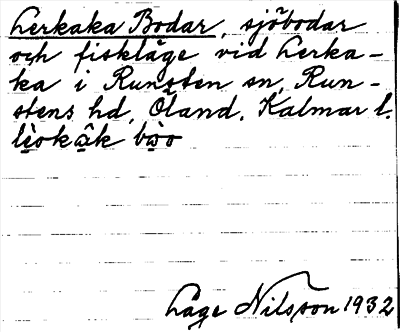 Lerkaka Bodar, sjöbodar
och fiskläge vid Lerka-
ka i Runsten sn, Run-
stens hd, Öland, Kalmar l.
Låge Nilsson 1932